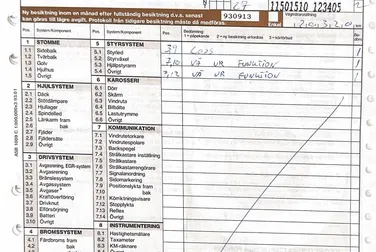 11501510 123405
Ny besiktning inom en månad efter fullständig besiktning d.v.s. senast
kan göras till lägre avgift. Protokoll från tidigare besiktning måste då medföras.
930913
Enkel
Pos. System/Komponent Pos. System/Komponent Pos.
1 STOMME
1.1 Sidobalk
1.2 Tvärbalk
1.3 Golv
1.4 Hjulhus
1.5 Övrigt
2 HJULSYSTEM
2.1 Däck
2.2 Stötdämpare
2.3 Hjullager
2.4 Spindelled
2.5 Länkarm fram
bak
2.6 Övrigt
3 DRIVSYSTEM
3.1 Avgasrening, EGR-system
3.2 Avgasrening
3.3 Bränslesystem
3.4 Avgassystem
3.5 Avgaser
3.6 Kraftöverföring
3.7 Drivknut
3.8 Elförsörjning
3.9 Batteri
3.10 Övrigt
4 BROMSSYSTEM
4.1 Färdbroms fram
4.2 bak
5 STYRSYSTEM
5.1 Styrled
5.2 Styrväxel
5.3 Hjälpstyrarm
5.5 Övrigt
6 KAROSSERI
6.1 Dörr
6.2 Skärm
6.3 Vindruta
6.4 Bilbälte
6.5 Lastutrymme
6.6 Övrigt
7 KOMMUNIKATION
7.1 Vindrutetorkare
7.2 Vindrutespolare
7.3 Backspegel
7.4 Strålkastare inställning
7.5 Strålkastare
7.6 Strålkastarrengörare
7.7 Signalanordning
7.8 Sidomarkering
7.9 Positionslykta fram
bak
7.11 Körriktningsvisare
7.12 Stopplykta
7.13 Reflex
7.14 Övrigt
8 INSTRUMENTERING
8.1 Hastighetsmätare
8.2 Taxameter
8.3 KM-räknare
3.9
7,10 VÄ UR FUNKTION
7,12 VÄ UR FUNKTION